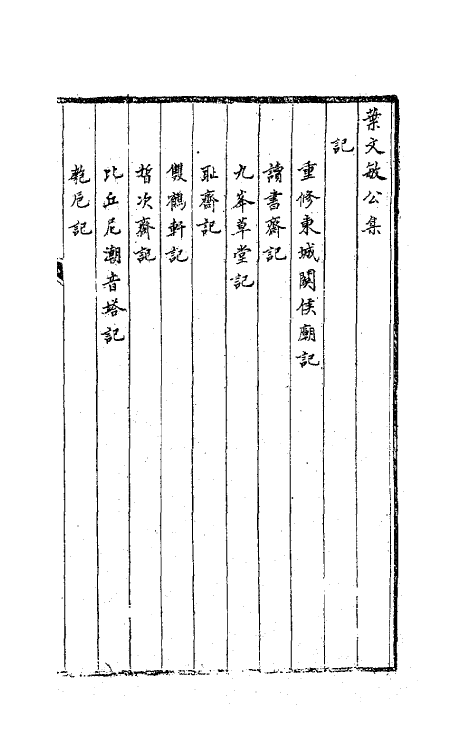 葉文敏公集
記
重修東城關侯廟記
讀書齋記
九峯草堂記
耻齋記
雙鶴軒記
哲次齋記
比丘尼潮音塔記
乾尼記